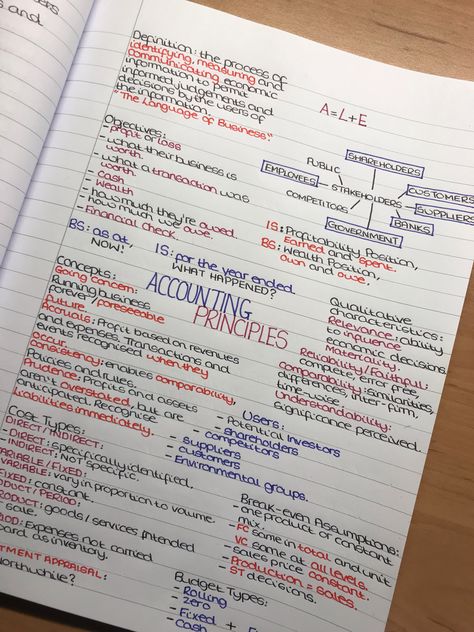 s and
Definition: the process of
identifying, measuring and
communicating economic
information to permit
informed judgements and
decisions by the users of
the information.
"The Language of Business."
A=L+E
Objectives:
- profit or loss
- what their business is
worth.
- what a transaction was
worth.
- Cash
- Wealth
- how much they're owed.
- how much we owe.
- Financial check.
PUBLIC
SHAREHOLDERS
EMPLOYEES
CUSTOMERS
STAKEHOLDERS
SUPPLIERS
COMPETITORS
BANKS
GOVERNMENT
IS: Profitability Position,
Earned and spent.
BS: Wealth Position,
own and owe.
BS: as at,
NOW!
IS: for the year ended.
WHAT HAPPENED?
ACCOUNTING
PRINCIPLES
Concepts:
Going Concern:
Running business
forever / foreseeable
future.
Accruals: Profit based on revenues
and expenses. Transactions and
events recognised when they
occur.
Consistency: enables comparability,
Policies and rules.
Prudence: Profits and assets
aren't overstated, but are
anticipated. Recognise
liabilities immediately.
Qualitative
characteristics:
Relevance: ability
to influence
economic decisions.
Materiality.
Reliability/Faithful:
complete, error free.
Comparability: similarities,
differences, inter-firm,
time-wise
Understandability:
significance perceived.
Users:
- potential Investors
- Shareholders
- competitors
- Suppliers
- customers
- Environmental groups.
Cost Types:
DIRECT / INDIRECT:
- DIRECT: specifically identified.
- INDIRECT: not specific.
VARIABLE / FIXED:
FIXED: constant.
VARIABLE: vary in proportion to volume.
PRODUCT / PERIOD:
PRODUCT: goods / services intended
sale.
PERIOD: Expenses not carried
as inventory.
TMENT APPRAISAL:
Northwhile?
Break-even Assumptions:
- one product or constant
mix.
- FC same in total and unit
VC same at all levels.
- sales price constant.
- Production = Sales.
- ST decisions.
Budget Types:
- Rolling
- Zero
- Fixed +
- Cash